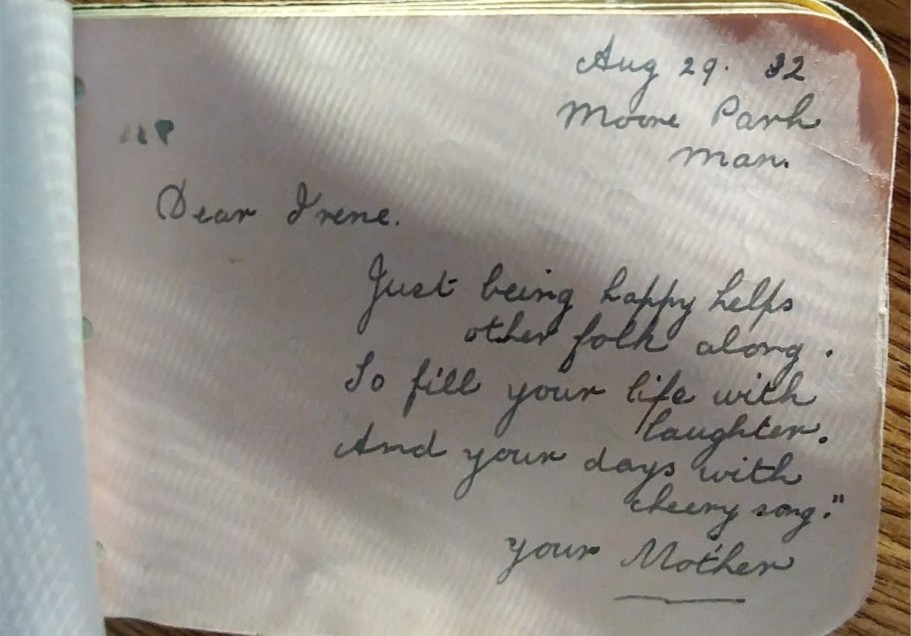 Aug 29. 32
Moore Park
Man.
Dear Irene.
Just being happy helps
other folk along.
So fill your life with
laughter.
And your days with
cheery song."
your Mother